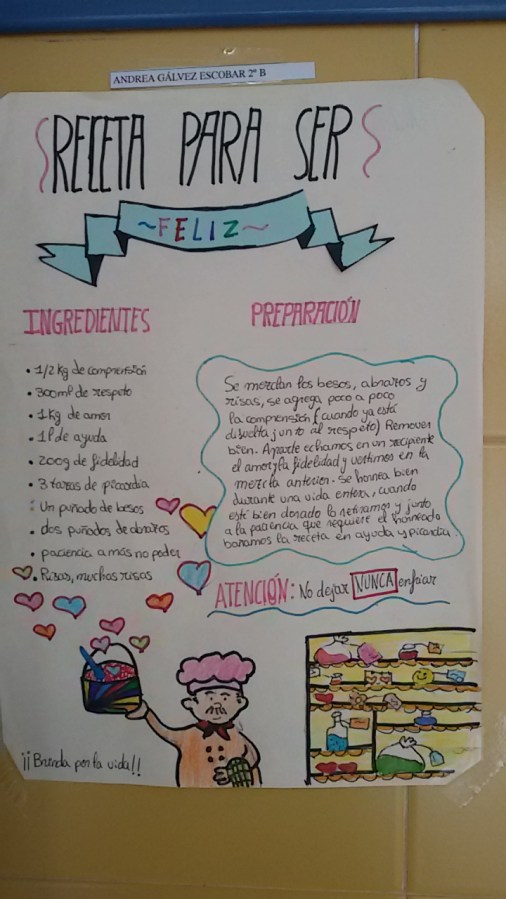 ANDREA GÁLVEZ ESCOBAR 2º B
RECETA PARA SER
~FELIZ~
INGREDIENTES
• 1/2 kg de comprensión
• 300ml de respeto
• 1kg de amor
• 1l de ayuda
• 200g de fidelidad
• 3 tazas de picardia
• Un puñado de besos
• dos puñados de abrazos
• paciencia a más no poder
• Risas, muchas risas
PREPARACIÓN
Se mezclan los besos, abrazos y
risas, se agrega poco a poco
la comprensión (cuando ya está
disuelta junto al respeto) Remover
bien. Aparte echamos en un recipiente
el amor y la fidelidad y vertimos en la
mezcla anterior. Se hornea bien
durante una vida entera, cuando
esté bien dorado lo retiramos y junto
a la paciencia que requiere el horneado
bañamos la receta en ayuda y picardia.
ATENCIÓN: No dejar NUNCA enfriar
¡¡Brinda por la vida!!